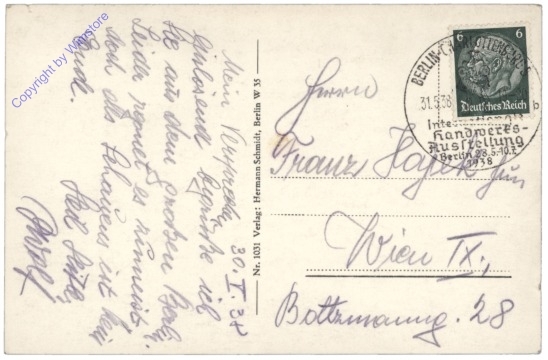 Mein Versprechen
einlösend begrüße ich
Sie aus dem großen Berlin.
Leider regnet es
und des Schauens ist kein
Ende.
30. V. 38
Nr. 1031 Verlag: Hermann Schmidt, Berlin W 35
BERLIN-CHARLOTTENBURG
31.5.38
b
Internationale
Handwerks-
Ausstellung
Berlin 28.5.-10.7.
1938
6 6
Deutsches Reich
Herrn
Franz Hajek jun
Wien IX.,
Boltzmanng. 28
Copyright by Warstore